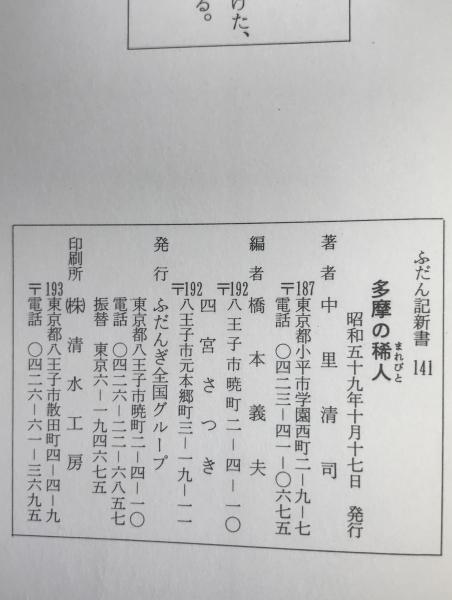 けた、
る。
ふだん記新書 141
多摩の稀人
まれびと
昭和五十九年十月十七日 発行
著者 中里清司
〒187 東京都小平市学園西町二ー九ー七
電話 〇四二三ー四一ー〇六七五
編者 橋本義夫
〒192 八王子市暁町二ー四ー一〇
四宮さつき
〒192 八王子市元本郷町三ー一九ー一一
発行 ふだんぎ全国グループ
東京都八王子市暁町二ー四ー一〇
電話 〇四二六ー二二ー六八五七
振替 東京六ー一九四六七五
印刷所 ㈱清水工房
〒193 東京都八王子市散田町四ー四ー九
電話 〇四二六ー六一ー三六九五